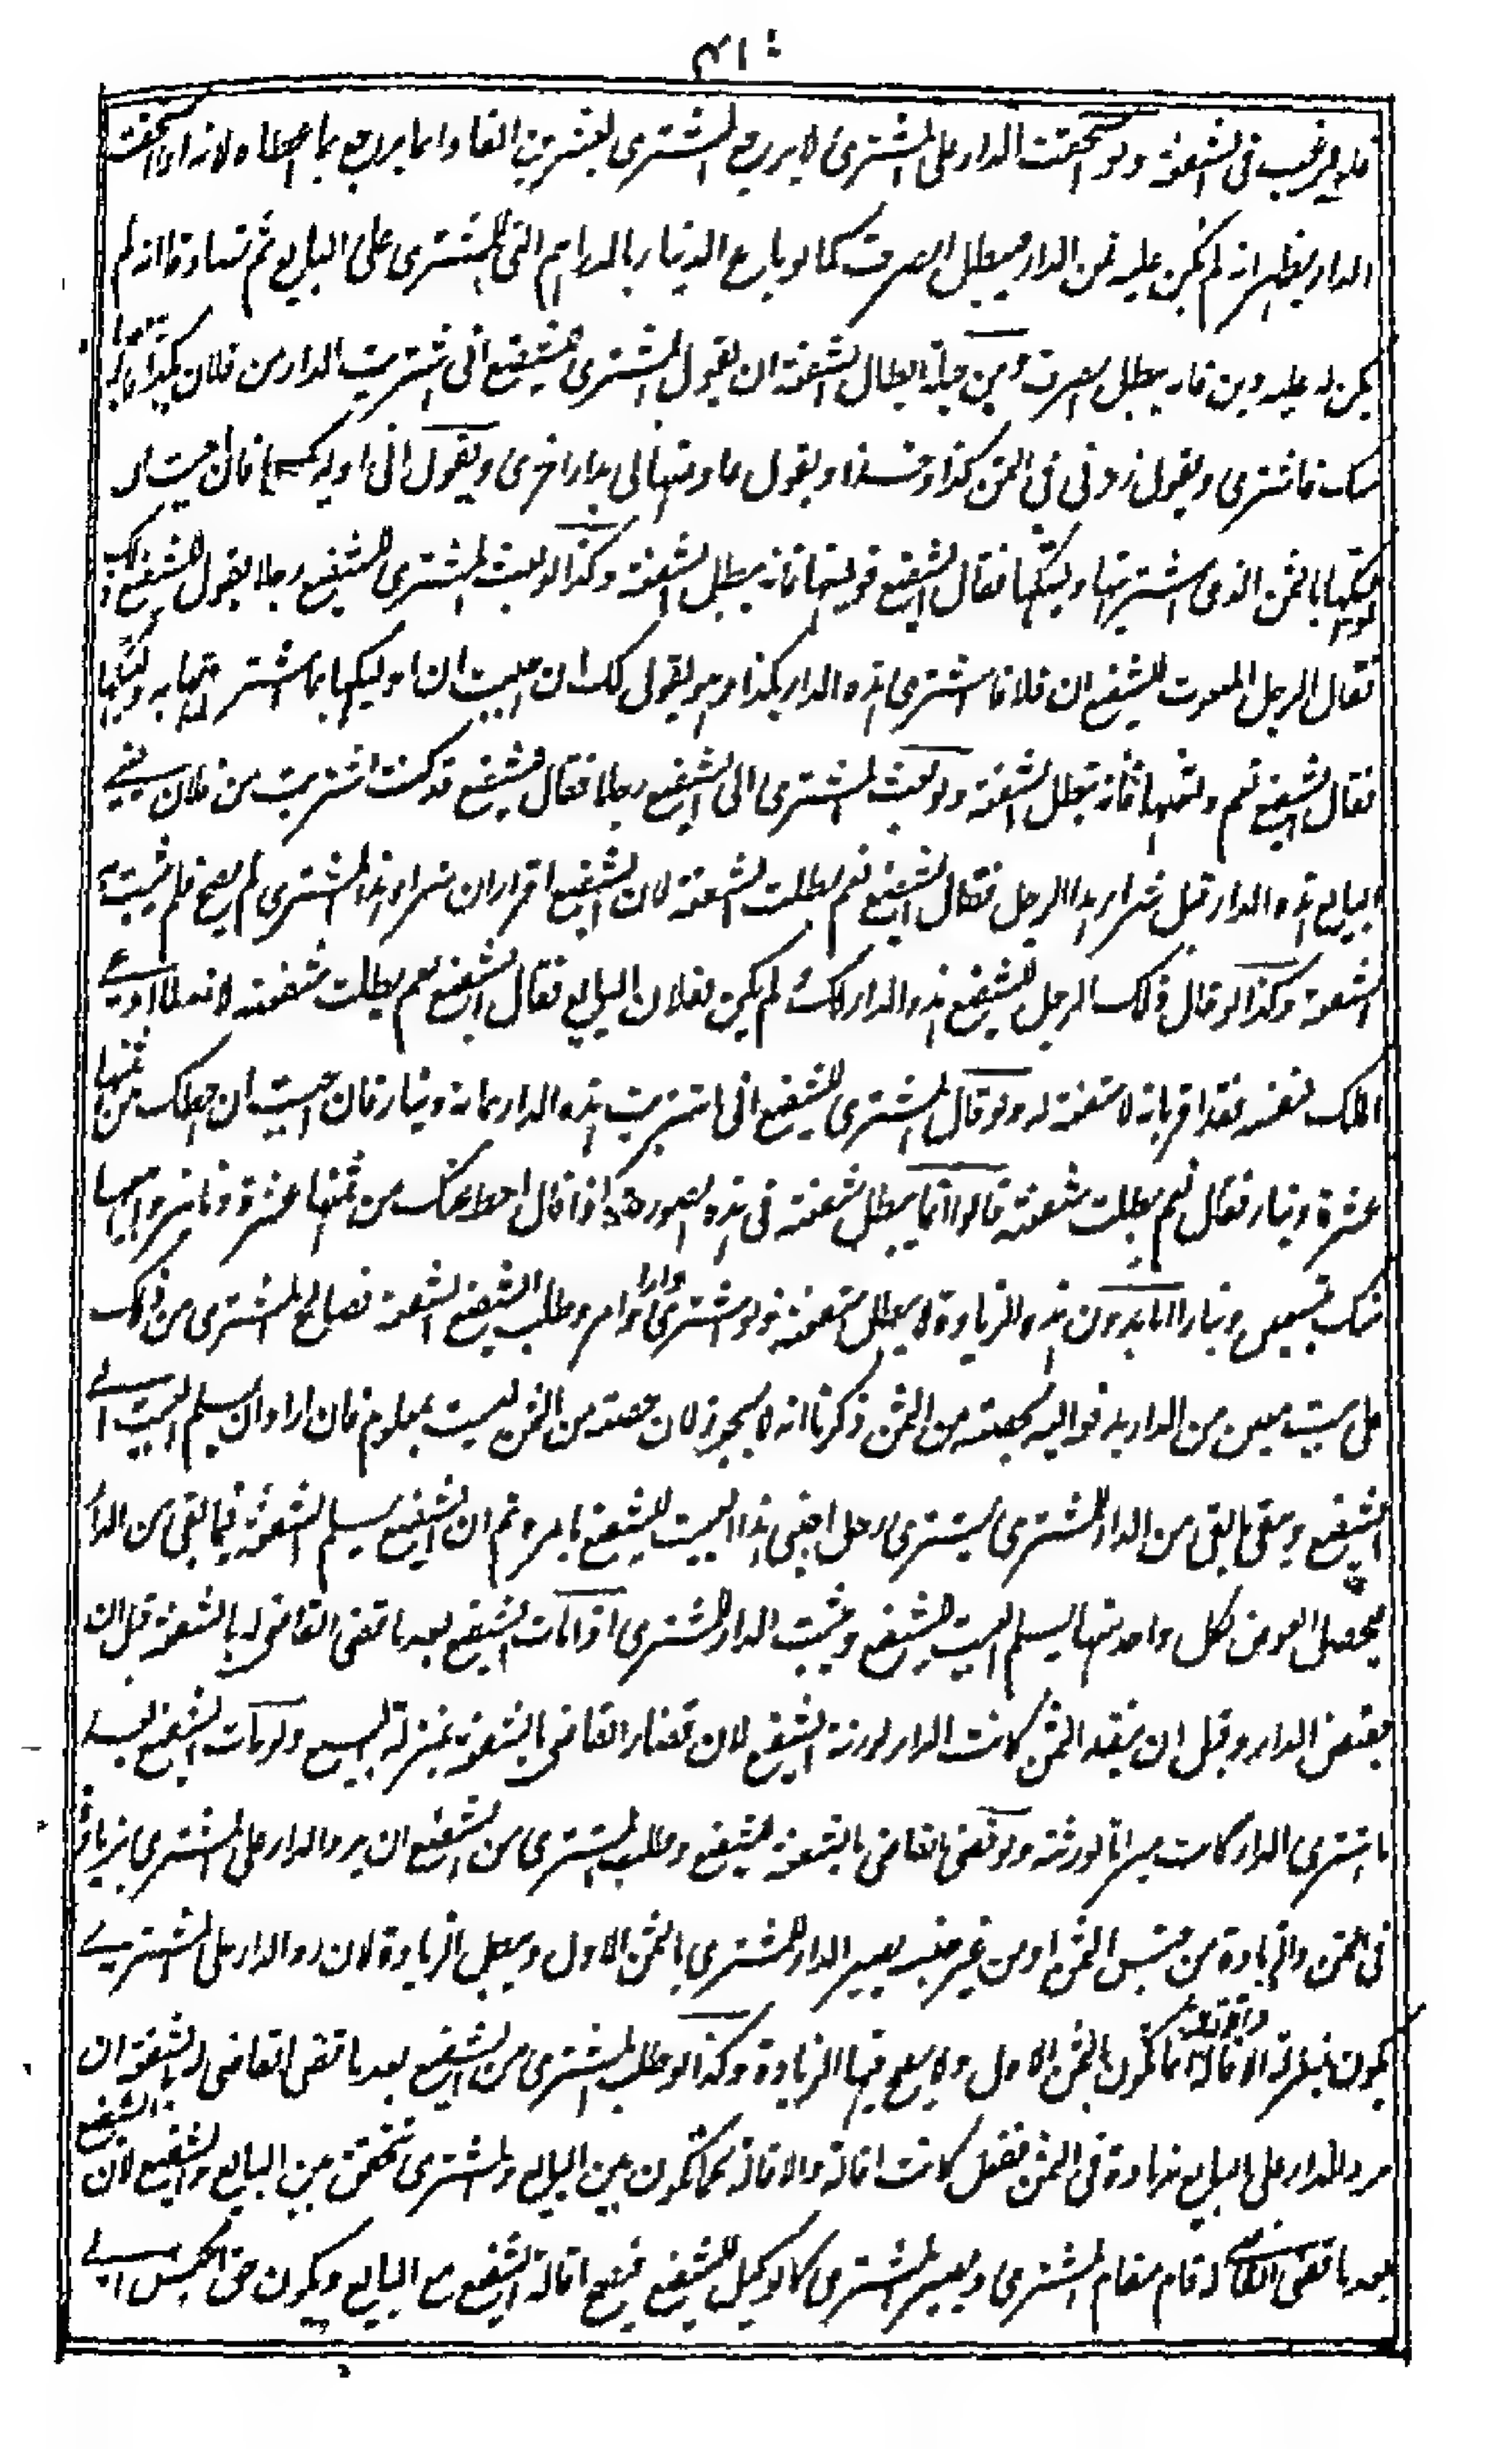 فلا يرغب فى الشفعة ولو استحقت الدار على المشترى لا يرجع المشترى بعشرين الفا وانما يرجع بما اعطاه لانه اذا استحقت
الدار يظهر انه لم يكن عليه ثمن الدار فيبطل الصرف كما لو باع الدينار بالدراهم التى للمشترى على البايع ثم تصادقا انه لم
يكن له عليه دين فانه يبطل الصرف ومن حيلة ابطال الشفعة ان يقول المشترى للشفيع انى اشتريت الدار من فلان بكذا
منك فاشترى ويقول زدنى فى الثمن كذا وخذها ويقول ها وهبتها لى بدار اخرى ويقول انى اوليكها فان احببت ان
اوليكها بالثمن الذى اشتريتها وليتكها فقال الشفيع قد وليتها فانه يبطل الشفعة وكذا لو بعث المشترى للشفيع رجلا يقول للشفيع ذلك
فقال الرجل المبعوث للشفيع ان فلانا اشترى هذه الدار بكذا وهو يقول لك ان احببت ان اوليكها بما اشتريتها به وليتكها
فقال الشفيع نعم ولنيها فانه تبطل الشفعة ولو بعث المشترى الى الشفيع رجلا فقال للشفيع قد كنت اشتريت من فلان يعنى
البايع هذه الدار قبل شراء هذا الرجل فقال الشفيع نعم بطلت الشفعة لان الشفيع اقر ان شراء هذا المشترى لم يصح فلم تثبت
الشفعة وكذا لو قال ذلك الرجل للشفيع هذه الدار لك لم يكن لفلان البايع فقال الشفيع نعم بطلت شفعته لانه لما ادعى
الملك لنفسه فقد اقر بانه لا شفعة له ولو قال المشترى للشفيع انى اشتريت هذه الدار بمائة دينار فان احببت ان احط لك من ثمنها
عشرة دينار فقال نعم بطلت شفعته قالوا انما يبطل شفعته فى هذه الصورة اذا قال احط عنك من ثمنها عشرة دنانير وابيعها
منك بتسعين دينارا اما بدون هذه الزيادة لا يبطل شفعته ولو اشترى دارا وطلب الشفيع الشفعة فصالح المشترى من ذلك
على بيت معين من الدار يدفع اليه بحصته من الثمن ذكرنا انه لا يجوز لان حصته من الثمن ليست بمعلوم فان ارادوا ان يسلم البيت الى
الشفيع ويبقى ما بقى من الدار للمشترى يشترى رجل اجنبى هذا البيت للشفيع بامره ثم ان الشفيع يسلم الشفعة فيما بقى من الدار
فيحصل العوض لكل واحد منهما يسلم البيت للشفيع ويثبت الدار للمشترى اذا مات الشفيع بعد ما قضى القاضى له بالشفعة قبل ان
يقبض الدار وقبل ان ينقد الثمن كانت الدار لورثة الشفيع لان قضاء القاضى بالشفعة بمنزلة البيع ولو مات الشفيع بعد
ما اشترى الدار كانت ميراثا لورثته ولو قضى القاضى بالشفعة للشفيع وطلب المشترى من الشفيع ان يرد الدار على المشترى بزيادة
فى الثمن والزيادة من جنس الثمن او من غير جنسه يصير الدار للمشترى بالثمن الاول ويبطل الزيادة لان رد الدار على المشترى
يكون بمنزلة الاقالة والاقالة انما تكون بالثمن الاول ولا يصح فيها الزيادة وكذا لو طلب المشترى من الشفيع بعد ما قضى القاضى له بالشفعة ان
يرد الدار على البايع بزيادة فى الثمن ففعل كانت اقالة والاقالة كما تكون بين البايع والمشترى تتحقق بين البايع والشفيع لان الشفيع
بعد ما قضى القاضى له قام مقام المشترى ويصير المشترى كالوكيل للشفيع فيصح اقالة الشفيع مع البايع ويكون حق الحبس الى